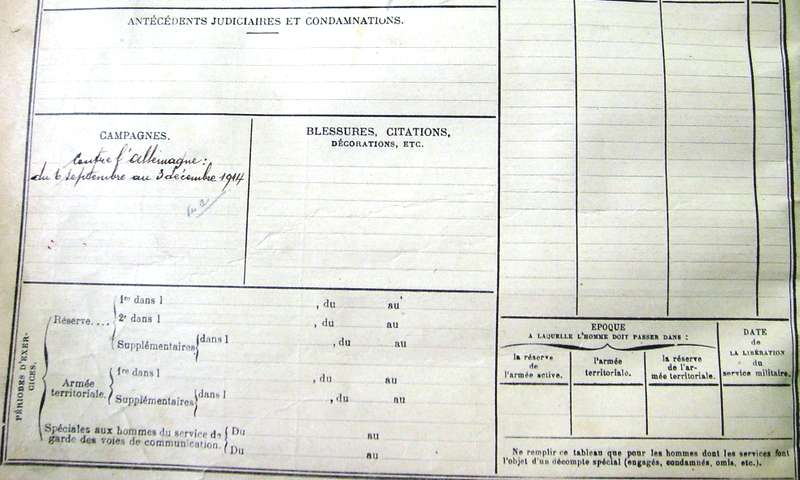 ANTÉCÉDENTS JUDICIAIRES ET CONDAMNATIONS.
CAMPAGNES.
Contre l'allemagne :
du 6 septembre au 3 décembre 1914
BLESSURES, CITATIONS,
DÉCORATIONS, ETC.
PÉRIODES D'EXER-
CICES.
Réserve....
1re dans l , du au
2e dans l , du au
Supplémentaires dans l , du au
Armée
territoriale.
1re dans l , du au
Supplémentaires dans l , du au
Spéciales aux hommes du service de
garde des voies de communication.
Du au
Du au
EPOQUE
A LAQUELLE L'HOMME DOIT PASSER DANS :
la réserve
de
l'armée active.
l'armée
territoriale.
la réserve
de l'ar-
mée territoriale.
DATE
de
LA LIBÉRATION
du
service militaire.
Ne remplir ce tableau que pour les hommes dont les services font
l'objet d'un décompte spécial (engagés, condamnés, omis, etc.).